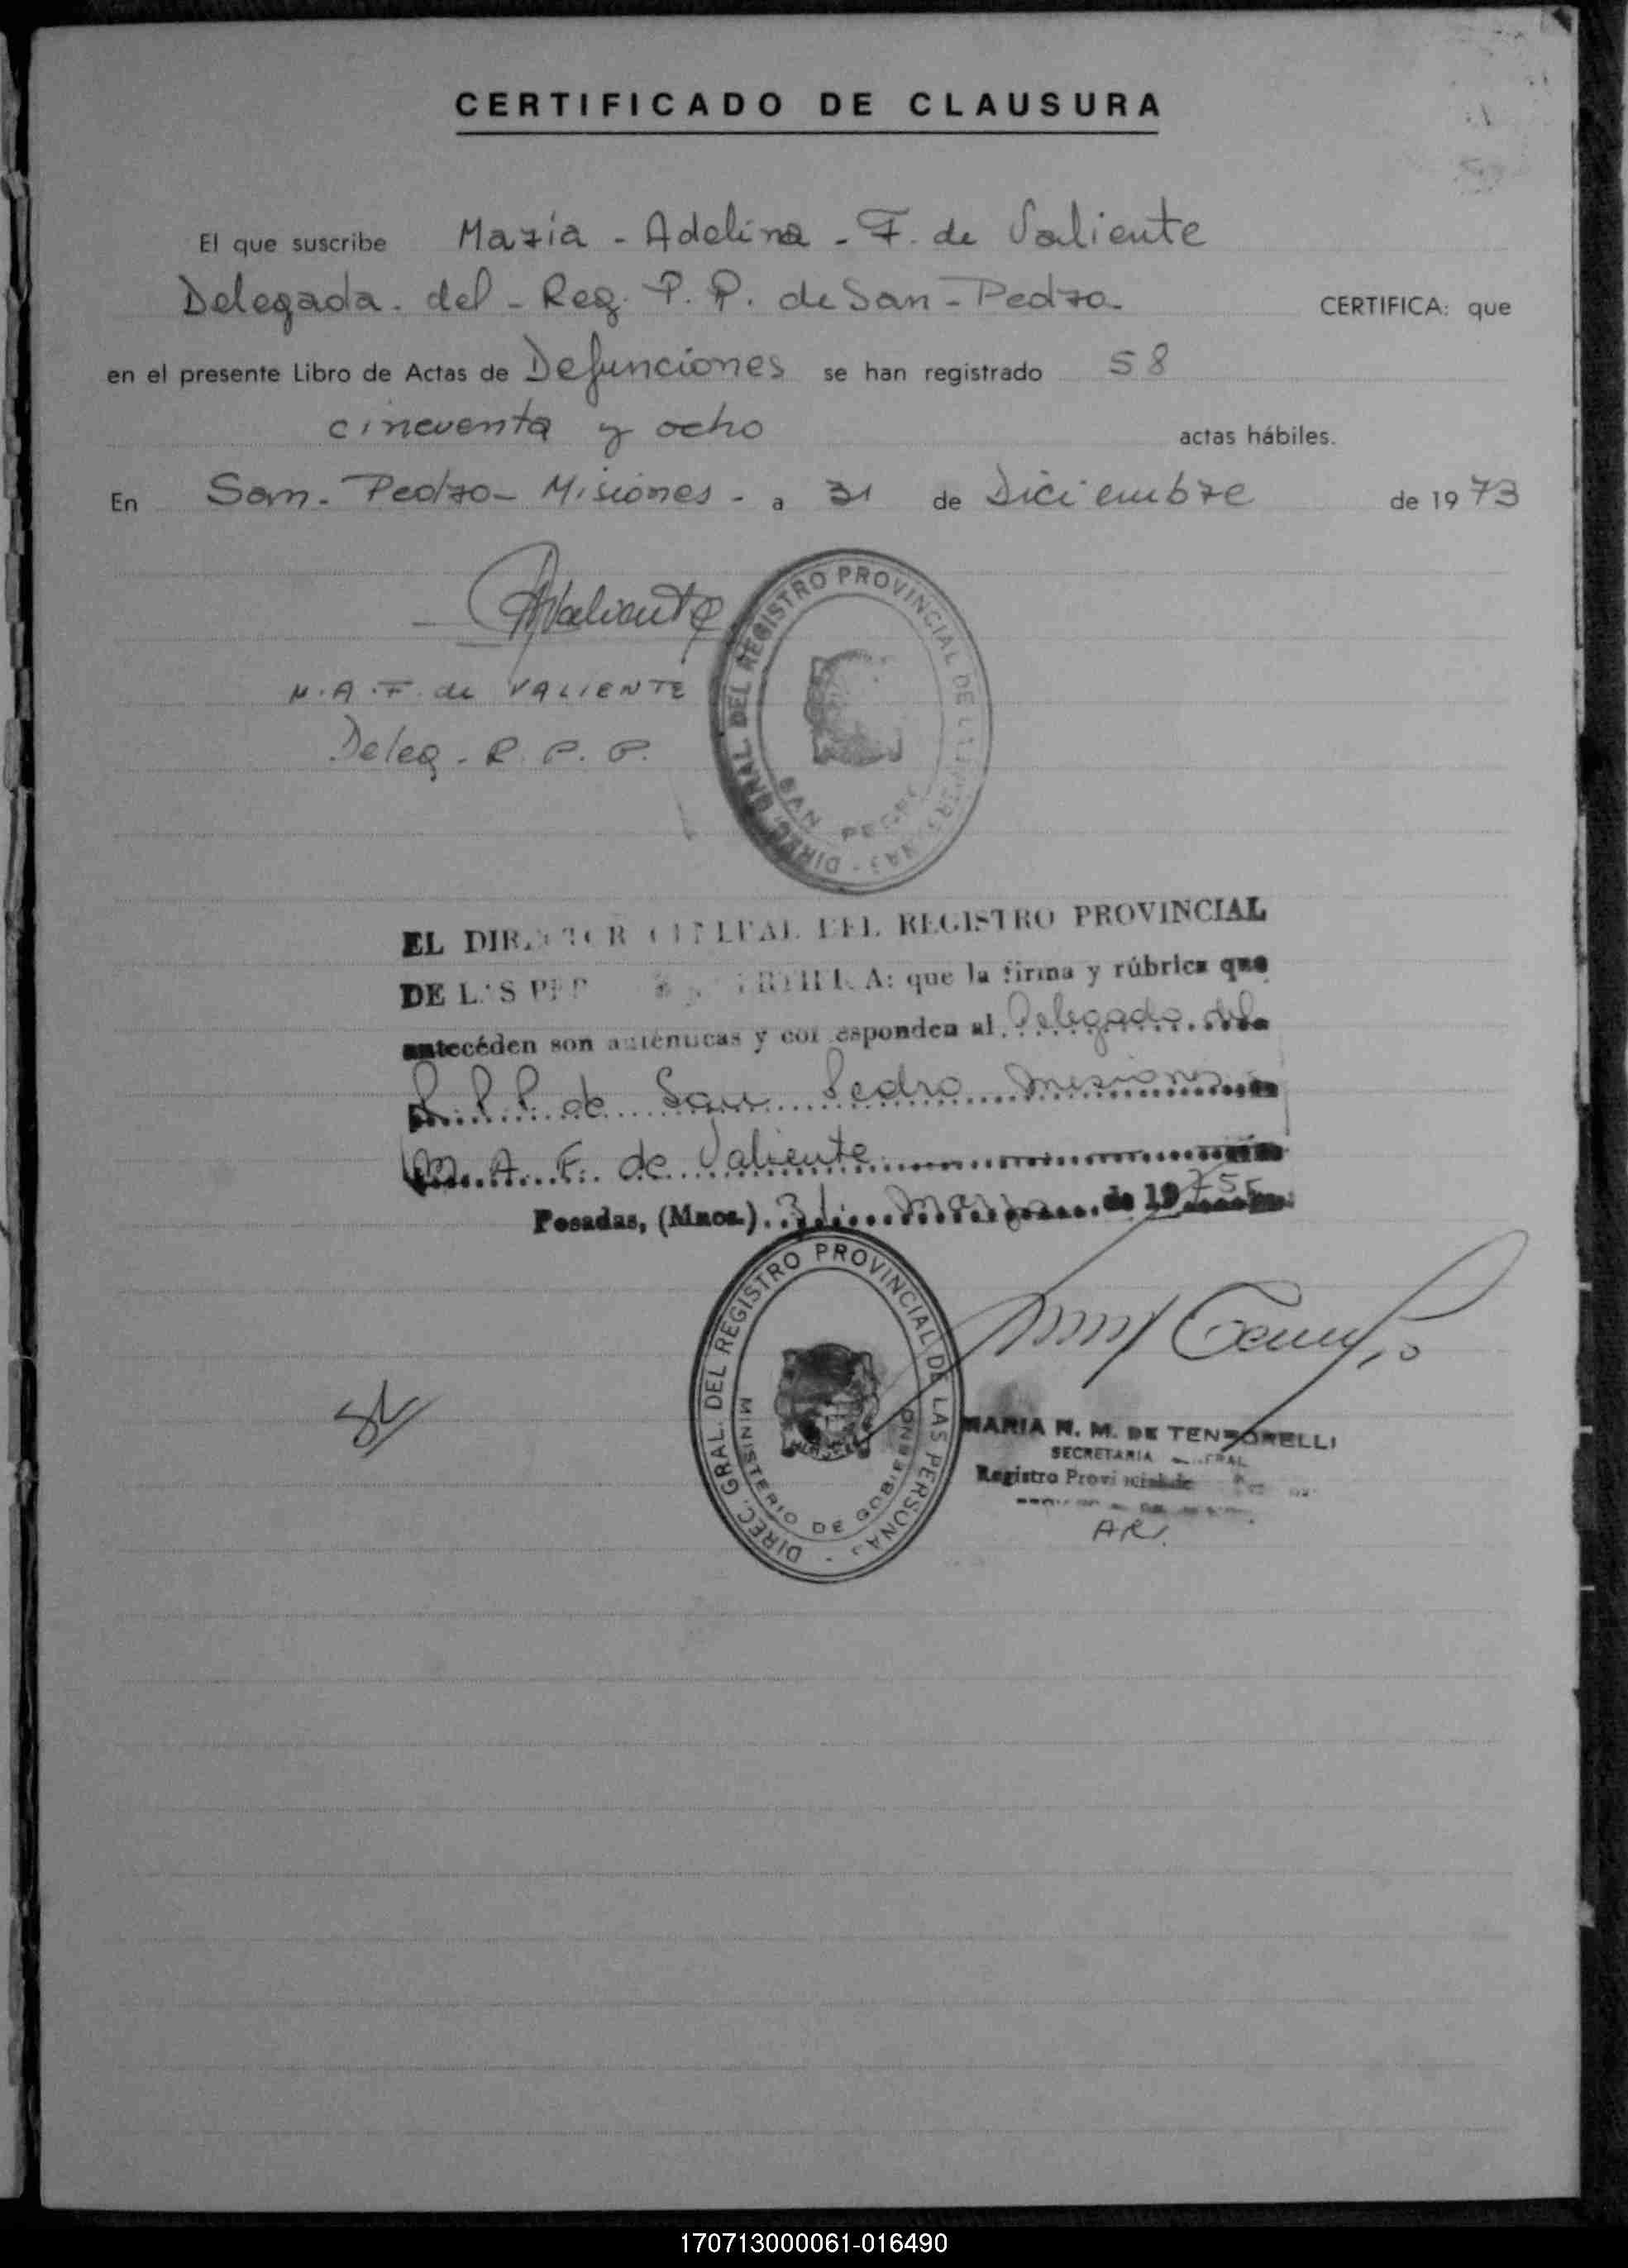 CERTIFICADO DE CLAUSURA
El que suscribe Maria - Adelina - F. de Valiente
Delegada. del - Reg. P. P. de San - Pedro. CERTIFICA: que
en el presente Libro de Actas de Defunciones se han registrado 58
cincuenta y ocho actas hábiles.
En San. Pedro - Misiones - a 31 de Diciembre de 1973
AValiente
M. A. F. de VALIENTE
Deleg. R. P. P.
DIREC. GRAL. DEL REGISTRO PROVINCIAL DE LAS PERSONAS -
SAN PEDRO
EL DIRECTOR GENERAL DEL REGISTRO PROVINCIAL
DE LAS PER CERTIFICA: que la firma y rúbrica que
antecéden son auténticas y corresponden al Delegado del
R. P. P. de San Pedro Misiones
M. A. F. de Valiente
Posadas, (Mnes.) 31 Marzo de 1975
DIREC. GRAL. DEL REGISTRO PROVINCIAL DE LAS PERSONAS -
MINISTERIO DE GOBIERNO
MARIA N. M. DE
SECRETARIA
Registro Provincial de
AR.
170713000061-016490